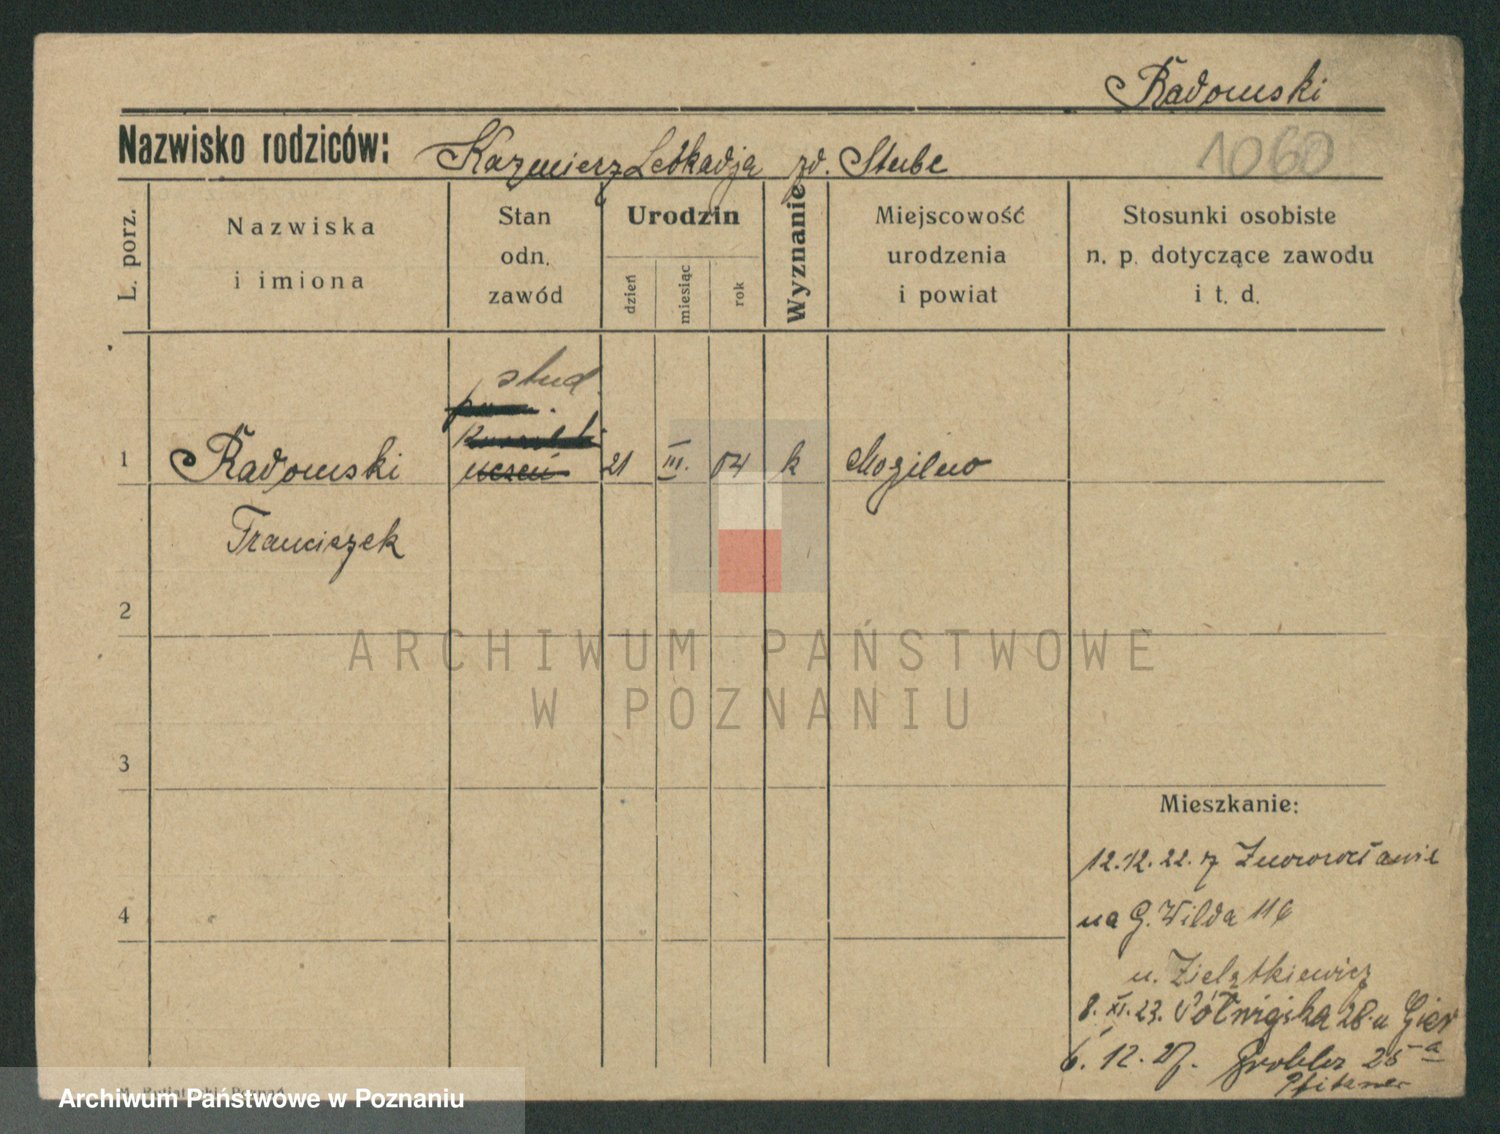 Radomski
Nazwisko rodziców: Kazmierz Leokadja zd. Stube
1060
L. porz.
Nazwiska
i imiona
Stan
odn.
zawód
Urodzin
dzień
miesiąc
rok
Wyznanie
Miejscowość
urodzenia
i powiat
Stosunki osobiste
n. p. dotyczące zawodu
i t. d.
stud.
1 Radomski uczeń 21 III. 04 k Mogilno
Franciszek
2
3
4
Mieszkanie:
12.12.22. z Inowrocławia
na G. Wilda 116
u. Zielątkiewicz
8. XI. 23. Półwiejska 28 u
6. 12. 27. Grobla 25 a
ARCHIWUM PAŃSTWOWE
W POZNANIU
Poznań
Archiwum Państwowe w Poznaniu